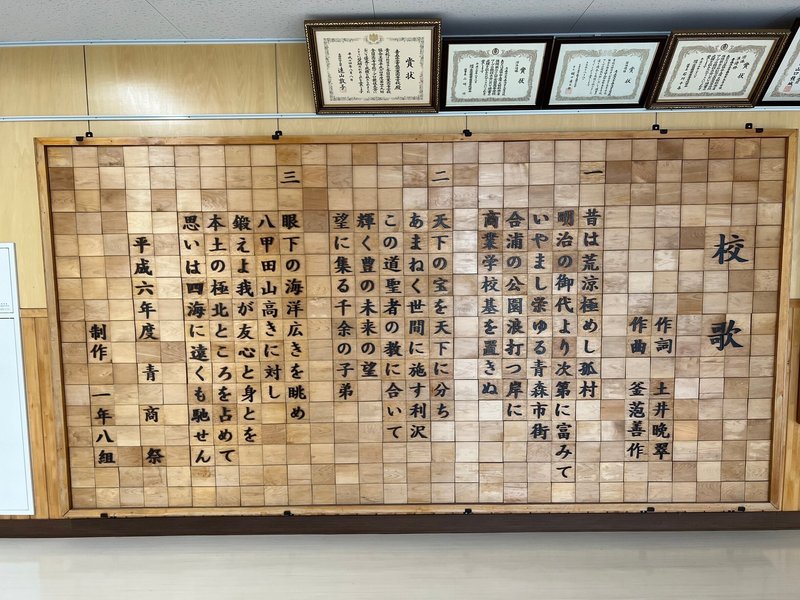 校歌
作詞 土井晩翠
作曲 釜萢善作
一
昔は荒涼極めし孤村
明治の御代より次第に富みて
いやまし栄ゆる青森市街
合浦の公園浪打つ岸に
商業学校基を置きぬ
二
天下の宝を天下に分ち
あまねく世間に施す利沢
この道聖者の教に合いて
輝く豊の未来の望
望に集る千余の子弟
三
眼下の海洋広きを眺め
八甲田山高きに対し
鍛えよ我が友心と身とを
本土の極北ところを占めて
思いは四海に遠くも馳せん
平成六年度 青商祭
制作 一年八組
賞状
賞状
賞状
賞状